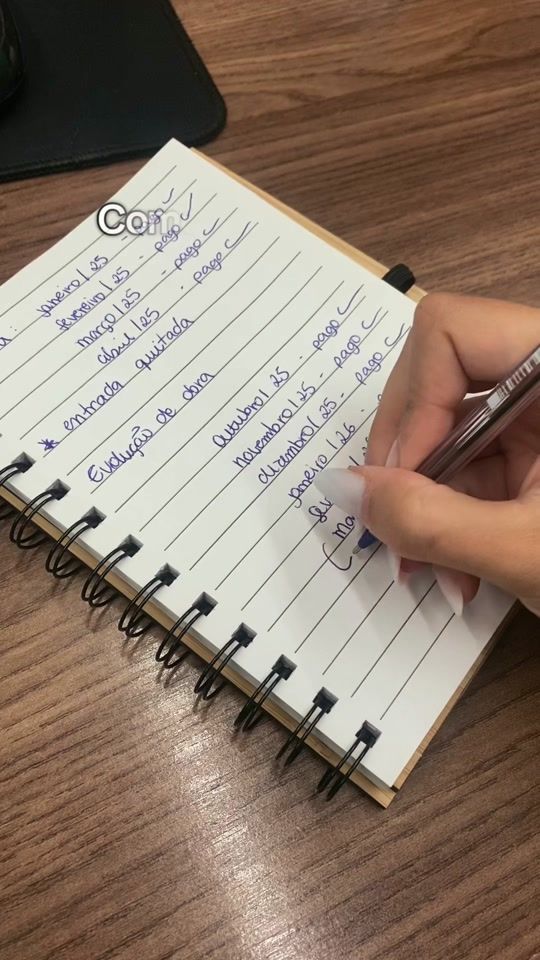 Com
janeiro/25 - pago ✓
fevereiro/25 - pago ✓
março/25 - pago ✓
abril/25 - pago ✓
* entrada quitada
Evolução de obra
outubro/25 - pago ✓
novembro/25 - pago ✓
dizembro/25 - pago ✓
janeiro/26 -
(ma